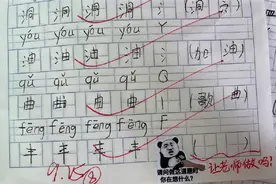 洞 洞 洞 洞 氵 (洞 )
yóu yóu yóu yóu Y
油 油 油 油 氵 (加 油)
qǔ qǔ qǔ qǔ Q
曲 曲 曲 曲 丨 (歌 曲)
fēng fēng fēng fēng F
丰 丰 丰 丰 ( )
让老师做吗?
你在想什么?